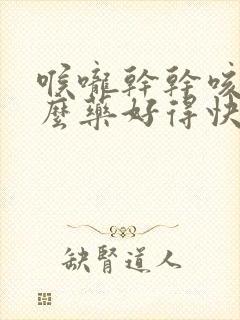 喉嚨幹幹咳
麼藥好得快
缺腎道人